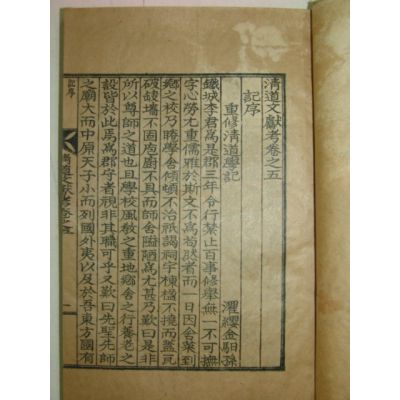 清道文獻考卷之五
記序
重修清道學記
濯纓金馹孫
鐵城李君爲是郡三年令行禁止百事修擧無一不可撫
字心勞尤重儒雅於斯文不爲苟然者而一日因舍菜到
鄕之校乃瞻學舍傾頓不治祇謁祠宇棟橈不撓而蓋瓦
破級墻不固庖廚不具而師舍隘陋爲尤甚乃歎曰是非
所以尊師之道也且學校風敎之重地鄕舍之行養老之
設皆於此焉爲郡守者視非其職可乎又歎曰先聖先師
之廟大而中原天子小而列國外夷以及於吾東方國有
記序
淸道文獻考卷之五
一